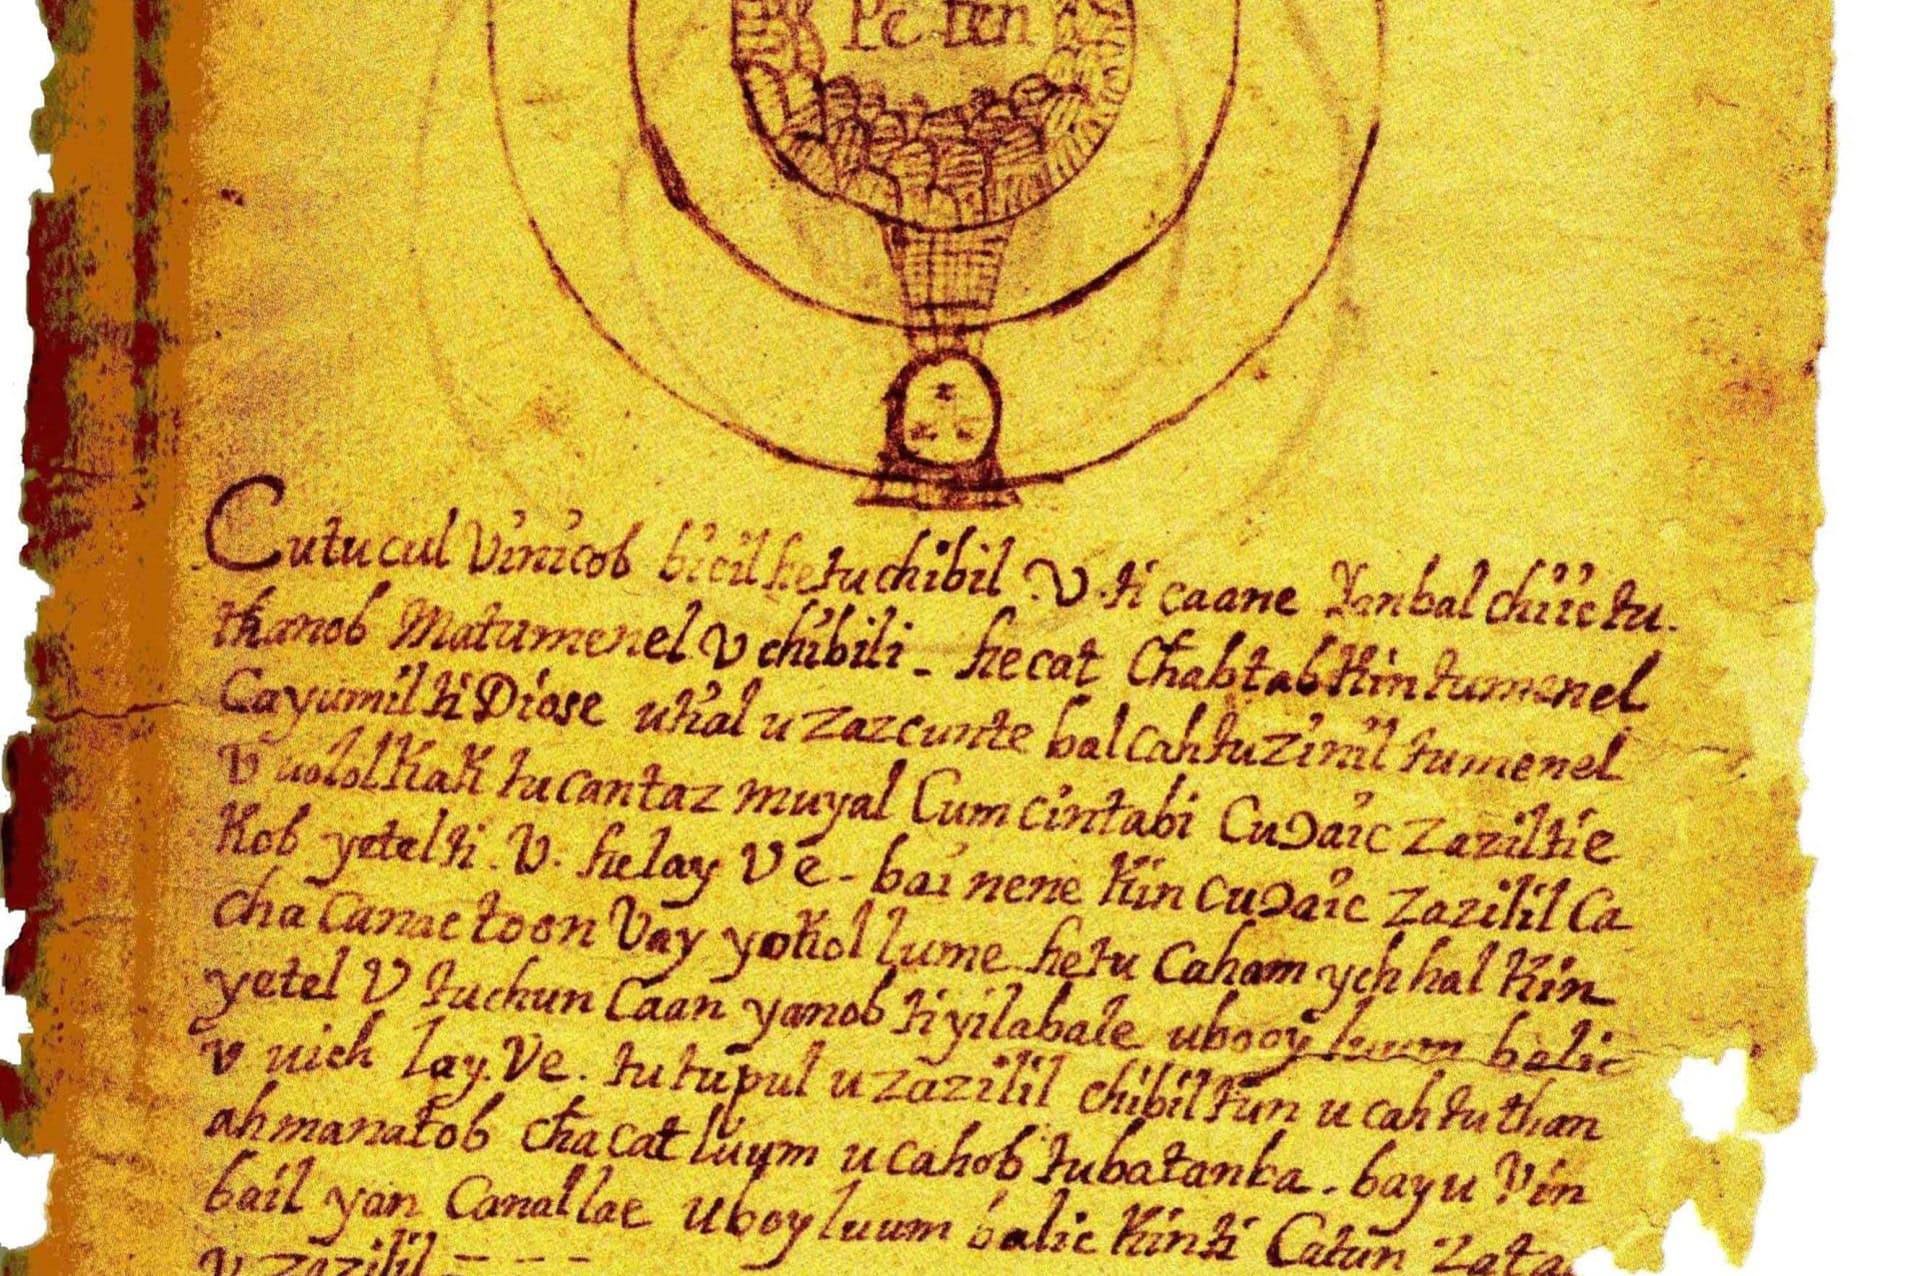 Pe ten
Cutucul Vinicob bicil he tu chibil V. ti caane Yanbal chiic tu.
thanob Ma tumenel V chibili - he cat Chabtab Kin tumenel
Ca yumil ti Diose u kal u zazcunte balcah tuzinil tumenel
V uolol Kak tu cantaz muyal Cum cintabi Cu Ɔaic Zazil tie
Kob yetel ti. V. helay V e - bai nene Kin cu Ɔaic Zazilil Ca
cha Canac toon Vay yokol lume he tu Caham ych hal Kin
yetel V tu chun Caan yanob ti yilabale u booy luum balic
v uich lay. Ve. tu tupul u zazilil chibil tun u cah tu than
ah manatob cha cat luum u cahob tu batanba. bay u Vin
bail yan Canal lae U boy luum balic Kin ti Catun
V zazilil - - - -